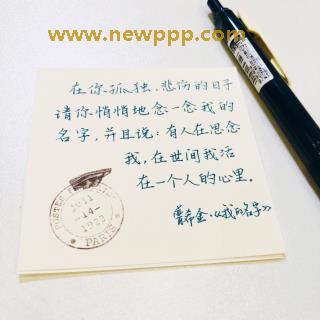 www.newppp.com
在你孤独、悲伤的日子
请你悄悄地念一念我的
名字，并且说：有人在思念
我，在世间我活
在一个人的心里。
普希金·《我的名字》
POSTES
JUIL
14
1923
PARIS